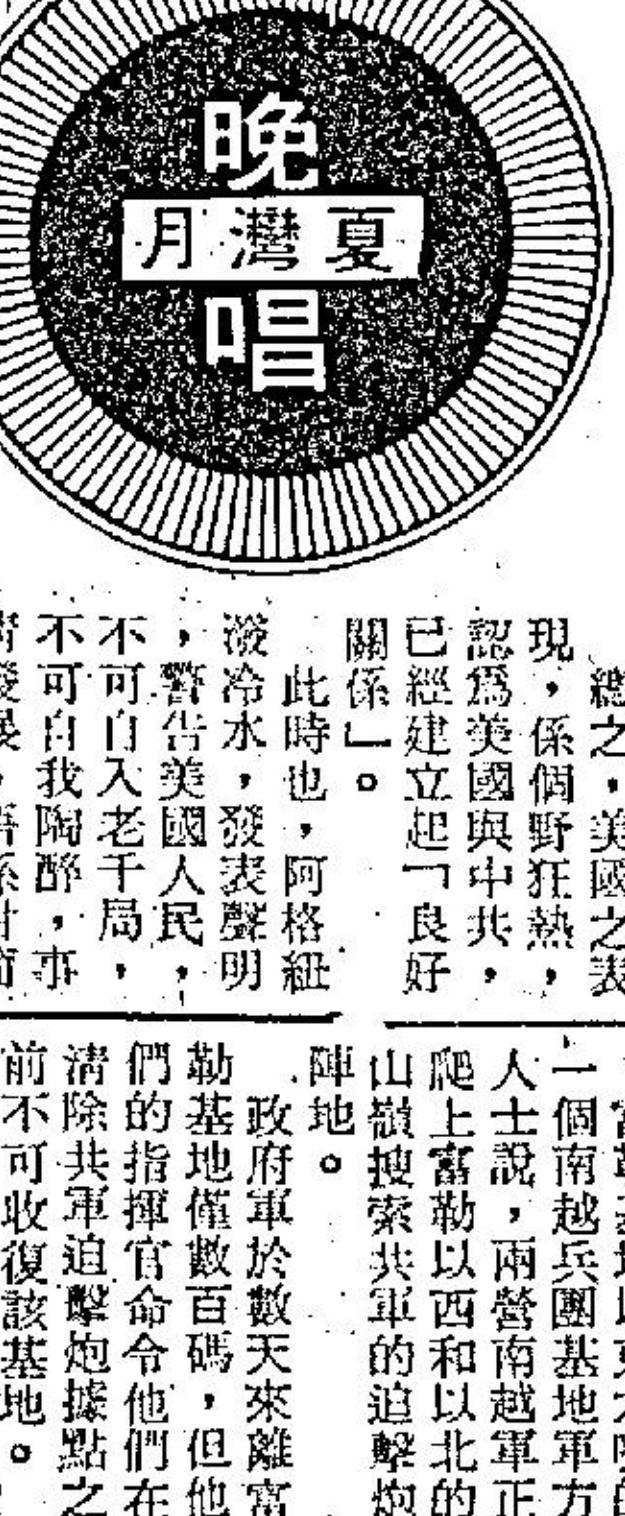 晚
夏灣月
唱
總之，美國之表
現，係個野狂熱，
認爲美國與中共，
已經建立起「良好
關係」。
此時也，阿格紐
潑冷水，發表聲明
，警告美國人民，
不可自入老千局，
不可自我陶醉，事
一個南越兵團基地軍方
人士說，兩營南越軍正
爬上富勒以西和以北的
山嶺搜索共軍的迫擊炮
陣地。
政府軍於數天來離富
勒基地僅數百碼，但他
們的指揮官命令他們在
清除共軍迫擊炮據點之
前不可收復該基地。